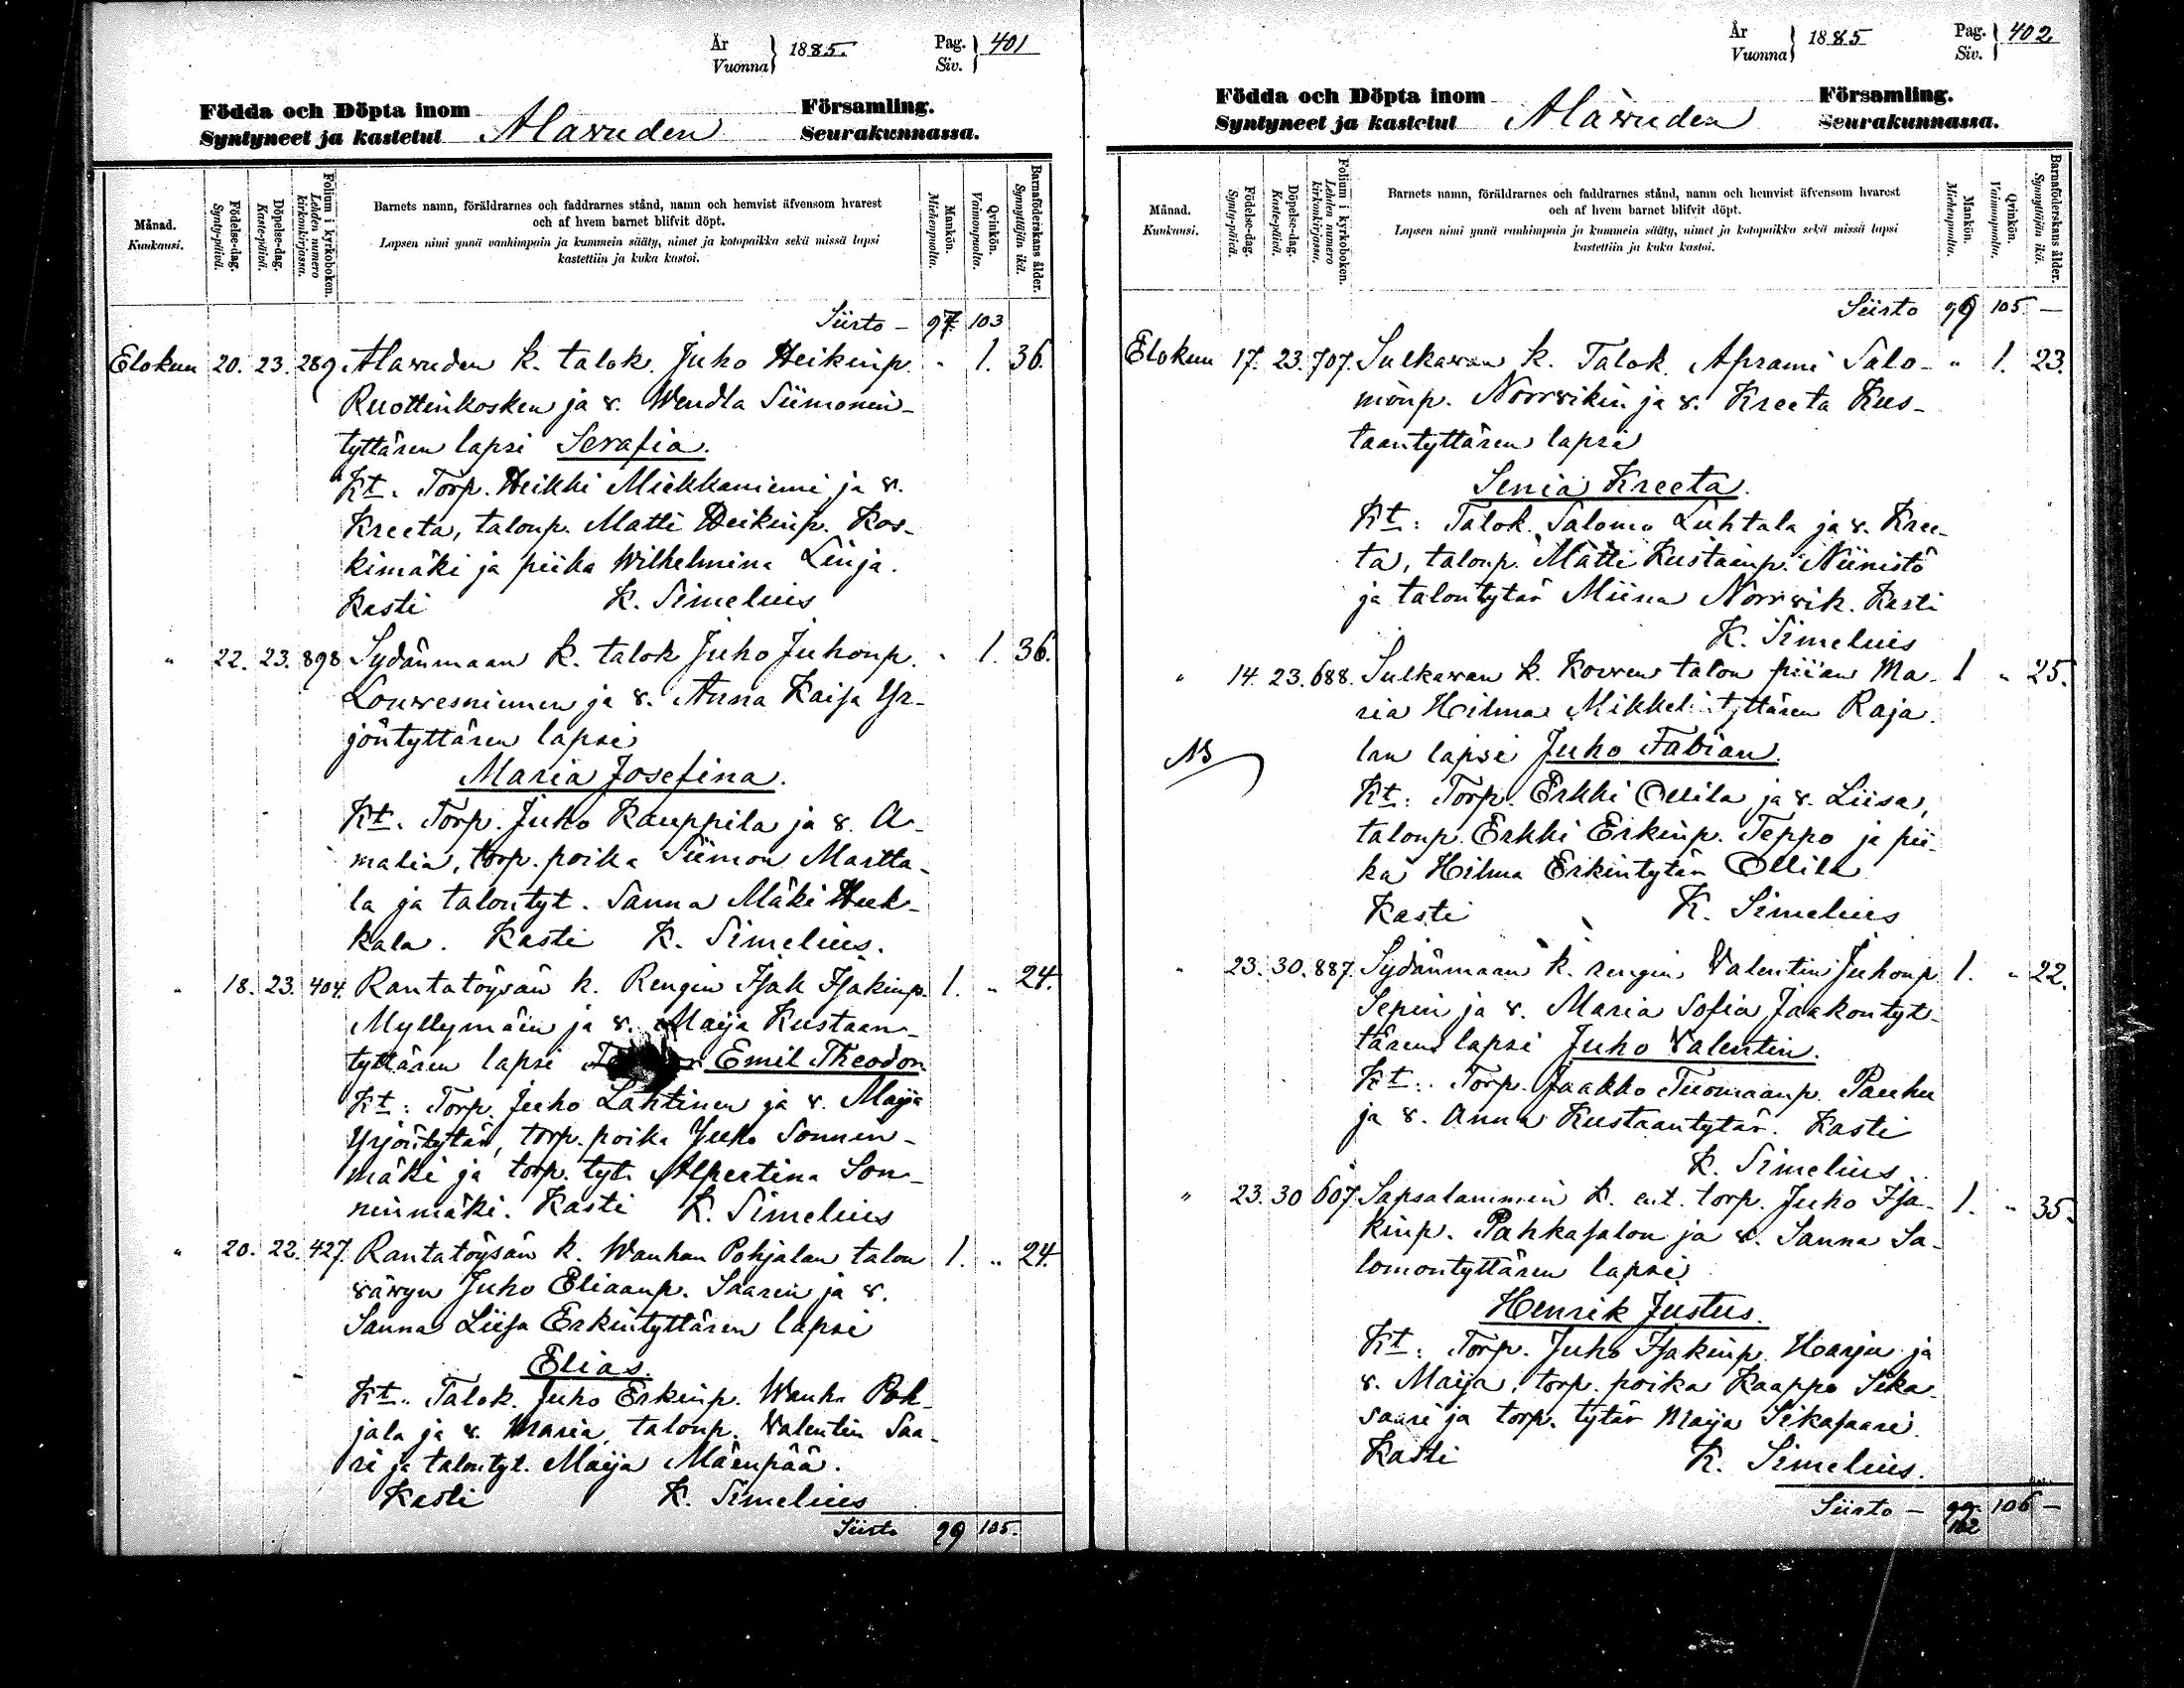 År
Vuonna
1885.
Pag.
Siv.
401
Födda och Döpta inom
Församling.
Syntyneet ja kastetut
Alavuden
Seurakunnassa.
Månad.
Kuukausi.
Födelse-dag.
Synty-päivä.
Döpelse-dag.
Kaste-päivä.
Folium i kyrkoboken.
Lehden numero
kirkonkirjassa.
Barnets namn, föräldrarnes och faddrarnes stånd, namn och hemvist äfvensom hvarest
och af hvem barnet blifvit döpt.
Lapsen nimi ynnä vanhimpain ja kummein sääty, nimet ja kotopaikka sekä missä lapsi
kastettiin ja kuka kastoi.
Mankön.
Miehenpuolta.
Qvinkön.
Vaimonpuolta.
Barnaföderskans ålder.
Synnyttäjän ikä.
Siirto – 97 103
Elokuu 20. 23. 289 Alavuden k. talok. Juho Heikinp. " 1. 36.
Ruottinkosken ja v. Wendla Siimonin-
tyttären lapsi Serafia.
Kt. Torp. Heikki Miekkaniemi ja v.
Kreeta, taloup. Matti Heikinp. Kos-
kimäki ja piika Wilhelmina Linja.
Kasti K. Simelius
" 22. 23. 898 Sydänmaan k. talok Juho Juhonp. " 1. 36.
Louvesniemen ja v. Anna Kaisa Yr-
jöntyttären lapsi
Maria Josefina.
Kt. Torp. Juho Kauppila ja v. A-
malia, torp. poika Siimon Martta-
la ja talontyt. Sanna Mäki Heik-
kala. Kasti K. Simelius.
" 18. 23. 404. Rantatöysän k. Rengin Isak Isakinp. 1. " 24.
Myllymäen ja v. Maija Kustaan-
tyttären lapsi Emil Theodor.
Kt: Torp. Juho Lahtinen ja v. Maija
Yrjöntytär, torp. poika Juho Sonnin-
mäki ja torp. tyt. Alpertina Son-
ninmäki. Kasti K. Simelius
" 20. 22. 427. Rantatöysän k. Wanhan Pohjalan talon 1. " 24.
vävyn Juho Eliaanp. Saaren ja v.
Sanna Liisa Erkintyttären lapsi
Elias.
Kt. Talok. Juho Erkinp. Wanha Poh-
jala ja v. Maria, taloup. Valentin Saa-
ri ja talontyt. Maija Mäenpää.
Kasti K. Simelius
Siirto 99 105.
År
Vuonna
1885
Pag.
Siv.
402
Födda och Döpta inom
Församling.
Syntyneet ja kastetut
Alavuden
Seurakunnassa.
Månad.
Kuukausi.
Födelse-dag.
Synty-päivä.
Döpelse-dag.
Kaste-päivä.
Folium i kyrkoboken.
Lehden numero
kirkonkirjassa.
Barnets namn, föräldrarnes och faddrarnes stånd, namn och hemvist äfvensom hvarest
och af hvem barnet blifvit döpt.
Lapsen nimi ynnä vanhimpain ja kummein sääty, nimet ja kotopaikka sekä missä lapsi
kastettiin ja kuka kastoi.
Mankön.
Miehenpuolta.
Qvinkön.
Vaimonpuolta.
Barnaföderskans ålder.
Synnyttäjän ikä.
Siirto 99 105 –
Elokuu 17. 23. 707. Sulkavan k. Talok. Aprami Salo- " 1. 23.
monp. Norrvikin ja v. Kreeta Kus-
taantyttären lapsi
Senia Kreeta.
Kt: Talok. Salomo Luhtala ja v. Kree-
ta, taloup. Matti Kustaanp. Niinistö
ja talontytär Miina Norrvik. Kasti
K. Simelius
" 14. 23. 688. Sulkavan k. Kosven talon piian Ma- 1 " 25.
ria Hilma Mikkelintyttären Raja-
lan lapsi Juho Fabian.
NB
Kt: Torp. Erkki Ollila ja v. Liisa,
taloup. Erkki Erkinp. Teppo ja pii-
ka Hilma Erkintytär Ollila
Kasti K. Simelius
" 23. 30. 887. Sydänmaan k. rengin Valentin Juhonp 1. " 22.
Sepin ja v. Maria Sofia Jaakontyt-
tären lapsi Juho Valentin.
Kt: Torp. Jaakko Tuomaanp. Pauhu
ja v. Anna Kustaantytär. Kasti
K. Simelius.
" 23. 30 607. Sapsalammin k. ent. torp. Juho Isa- 1. " 35.
kinp. Pahkasalon ja v. Sanna Sa-
lomontyttären lapsi
Henrik Justus.
Kt: Torp. Juho Isakinp. Harju ja
v. Maija, torp. poika Kaappo Sika-
saari ja torp. tytär Maija Sikasaari.
Kasti K. Simelius.
Siirto – 99 106 –
102